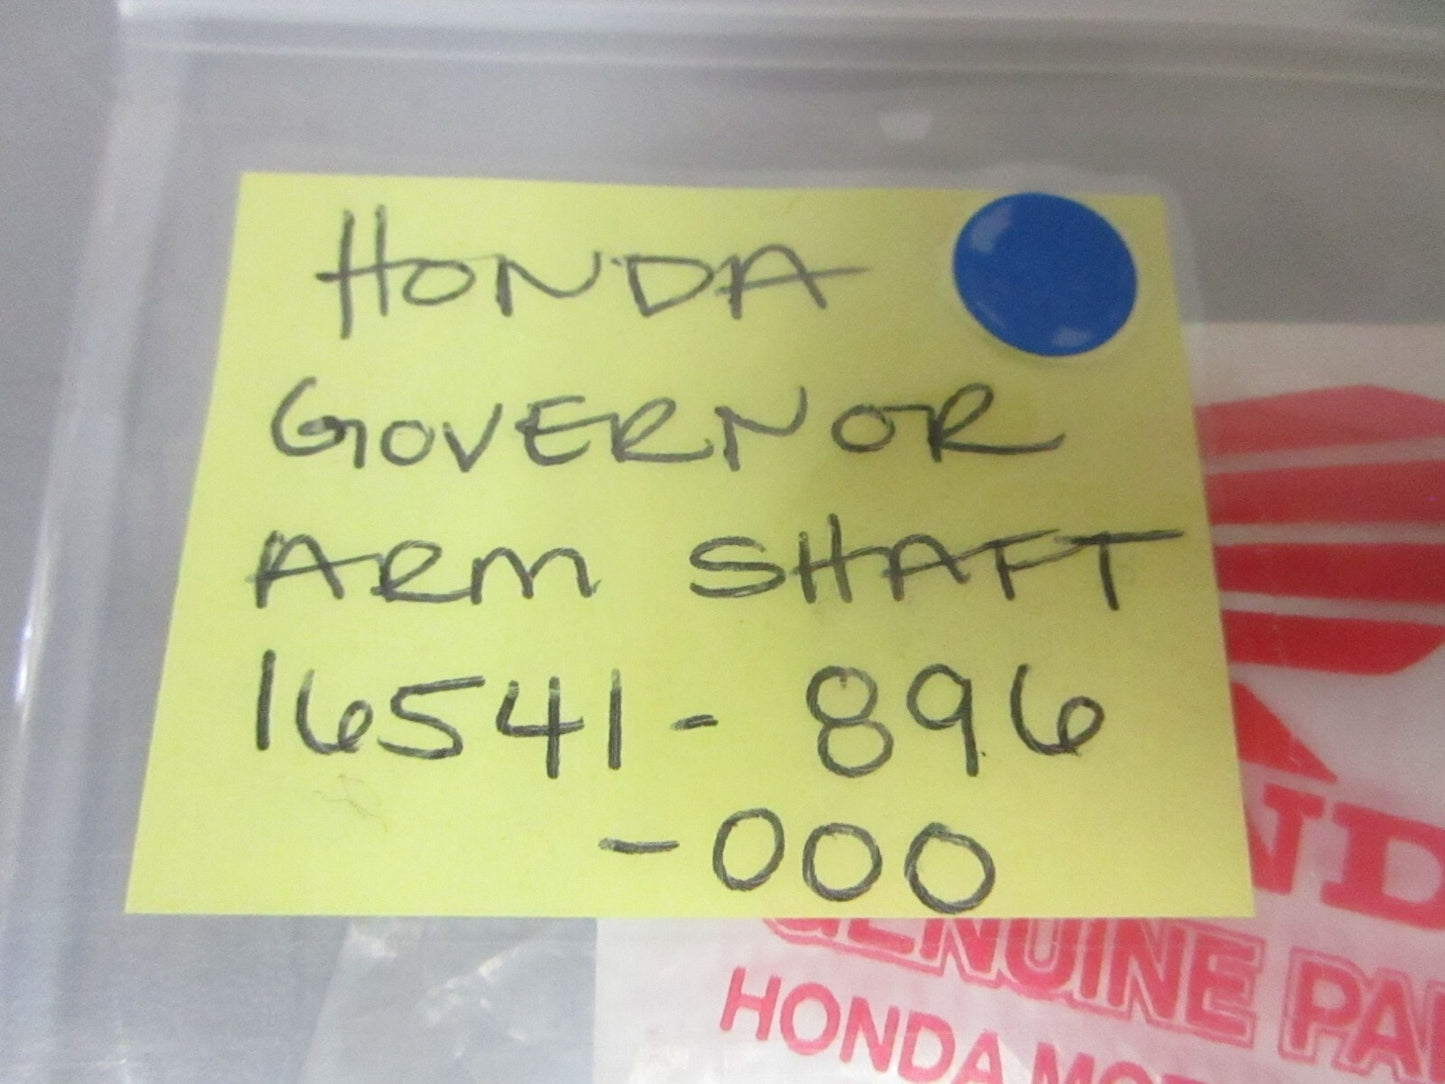 HONDA
GOVERNOR
ARM SHAFT
16541- 896
-000
GENUINE
HONDA